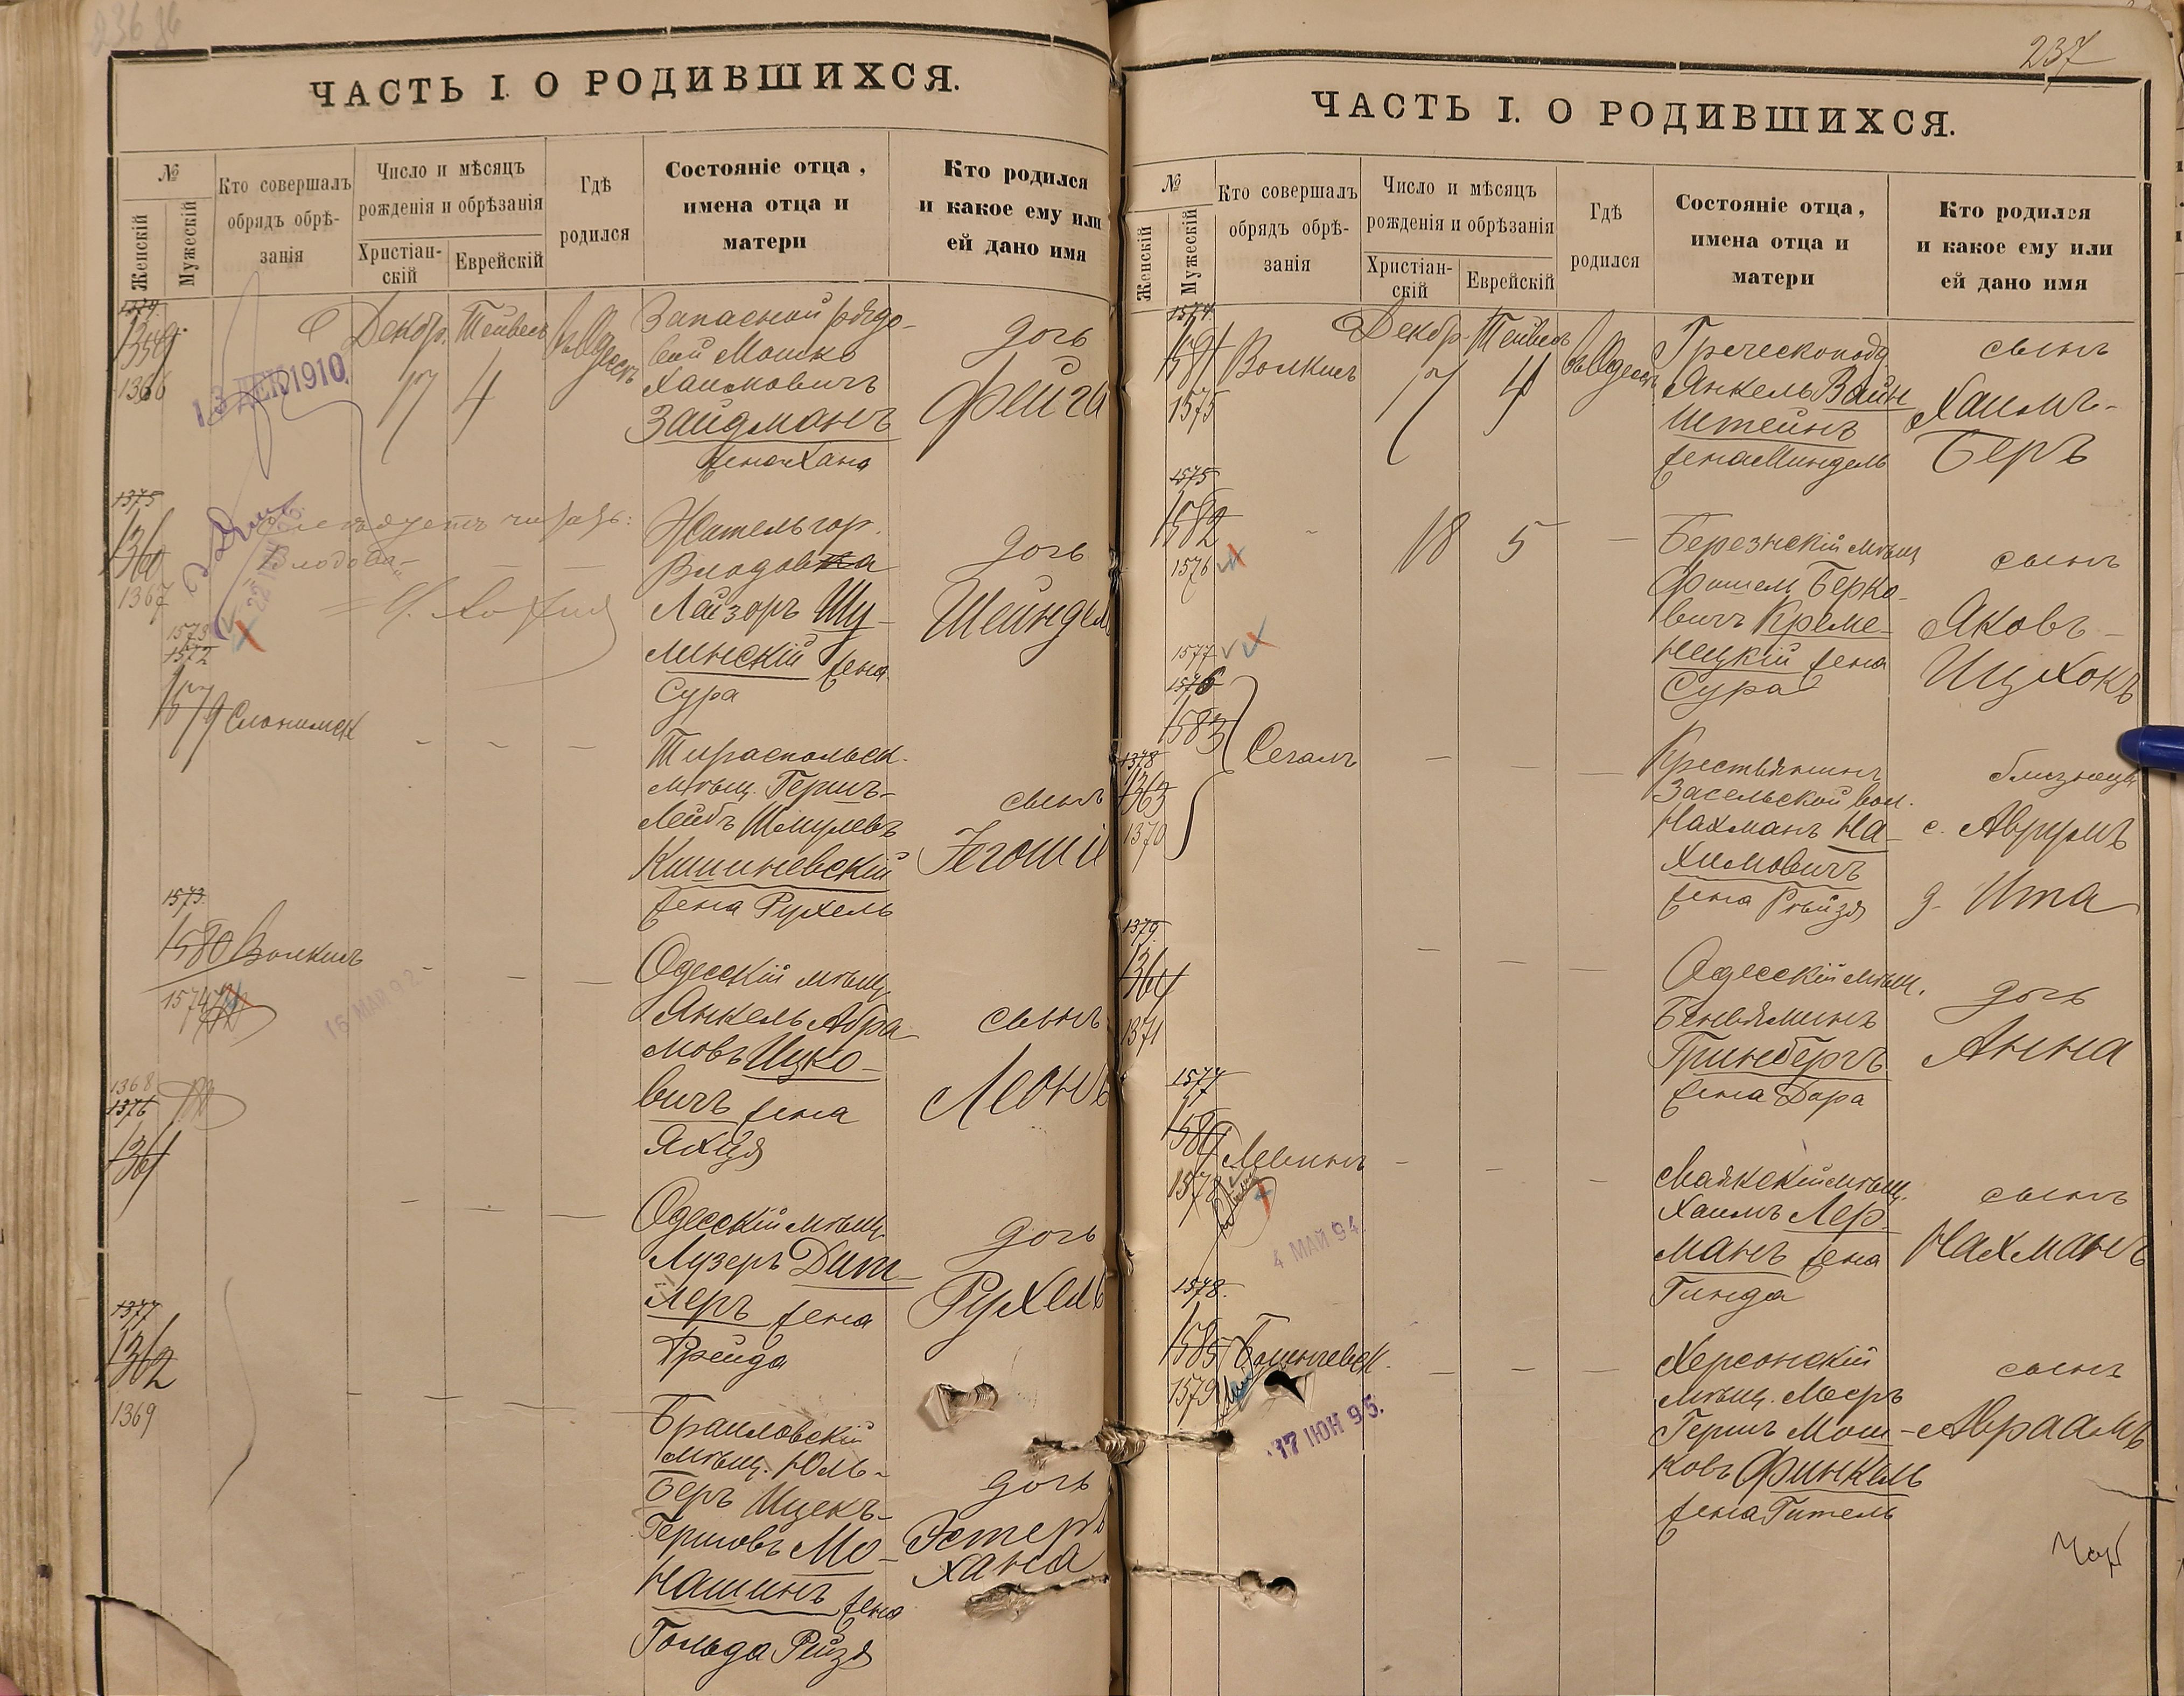 236 об
ЧАСТЬ I. О РОДИВШИХСЯ.
№
Женскій
Мужескій
Кто совершалъ
обрядъ обрѣ-
занія
Число и мѣсяцъ
рожденія и обрѣзанія
Христіан-
скій
Еврейскій
Гдѣ
родился
Состояніе отца,
имена отца и
матери
Кто родился
и какое ему или
ей дано имя
1374
1359
1366
13 ДЕК 1910
Декабр.
17
Тейвесъ
4
въ Одессѣ
Запасной рядо-
вой Мошко
Хаимовичъ
Зайдманъ
жена Хана
дочь
Фейга
1375
1360
1367
Слѣдуетъ читать:
Влодова-
Житель гор.
Влодовка
Лейзоръ Шу-
минскій жена
Сура
дочь
Шейндель
1573
1572
1579
Слонимск
Тираспольск.
мѣщ. Гершъ-
Лейбъ Шмулевъ
Кишиневскій
жена Рухель
сынъ
Іегошіе
1573
1580
1574
Волкисъ
16 МАЙ 92
Одесскій мѣщ.
Янкель Абра-
мовъ Ицко-
вичъ жена
Яхця
сынъ
Леонъ
1368
1376
1361
Одесскій мѣщ.
Лузеръ Дит-
леръ жена
Фрейда
дочь
Рухель
1377
1362
1369
Браиловскій
мѣщ. Юль-
Беръ Ицекъ-
Гершовъ Мо-
нашинъ жена
Гольда Рейзя
дочь
Эстеръ
Хана
237
ЧАСТЬ I. О РОДИВШИХСЯ.
№
Женскій
Мужескій
Кто совершалъ
обрядъ обрѣ-
занія
Число и мѣсяцъ
рожденія и обрѣзанія
Христіан-
скій
Еврейскій
Гдѣ
родился
Состояніе отца,
имена отца и
матери
Кто родился
и какое ему или
ей дано имя
1574
1581
1575
Волкисъ
Декабр.
17
Тейвесъ
4
въ Одессѣ
Греческопод.
Янкель Вайн
штейнъ
жена Миндель
сынъ
Хаимъ-
Беръ
1575
1582
1576
18
5
Березнскій мѣщ.
Фишель Берко-
вичъ Креме-
нецкій жена
Сура
сынъ
Яковъ-
Ицхокъ
1577
1576
1583
1378
1363
1370
Сегалъ
Крестьянинъ
Засельской вол.
Нахманъ На-
химовичъ
жена Рейзя
близнецы
с. Аврумъ
д. Ита
1379
1364
1371
Одесскій мѣщ.
Беньяминъ
Гринбергъ
жена Дора
дочь
Анна
1577
1584
1578
Левинъ
4 МАЙ 94
Маякскій мѣщ.
Хаимъ Лер-
манъ жена
Гинда
сынъ
Нахманъ
1578
1585
1579
17 ІЮН 95.
Херсонскій
мѣщ. Мееръ
Гершъ Мош-
ковъ Финкель
жена Гитель
сынъ
Авраамъ